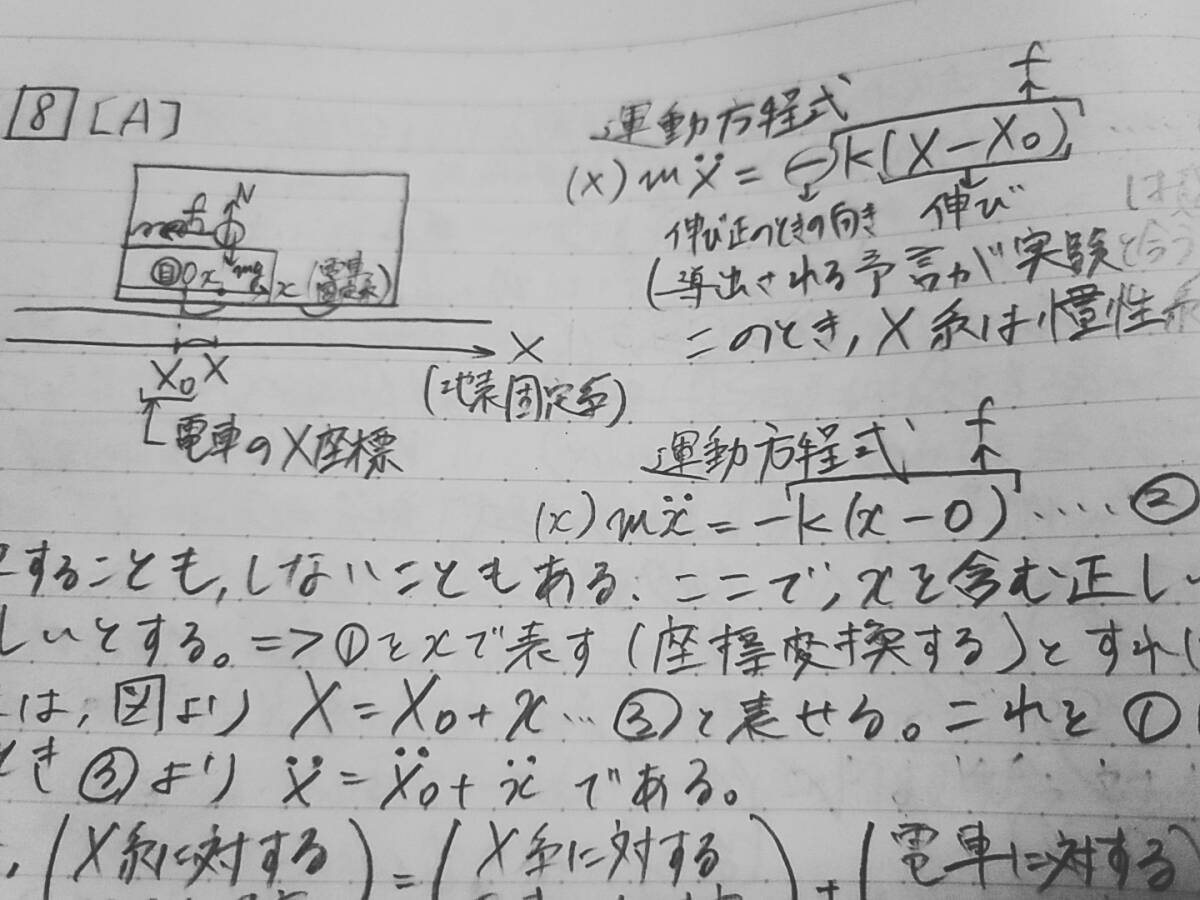 8 [A]
運動方程式 f
(X) mẌ = ⊖k(X−X₀) ……
伸び正のときの向き 伸び
(導出される予言が実験と合う
このとき, X系は慣性系
f N
目 0 x mg x (電車固定系)
X
X₀ X
(地表固定系)
電車のX座標
運動方程式 f
(x) mẍ = −k(x−0) ‥‥ ②
することも, しないこともある. ここで, xを含む正し
しいとする。=> ①をxで表す (座標変換する) とすれば
は, 図より X = X₀ + x … ③と表せる。これを ①
とき ③より Ẍ = Ẍ₀ + ẍ である。
, (X系に対する) = (X系に対する) + (電車に対する)